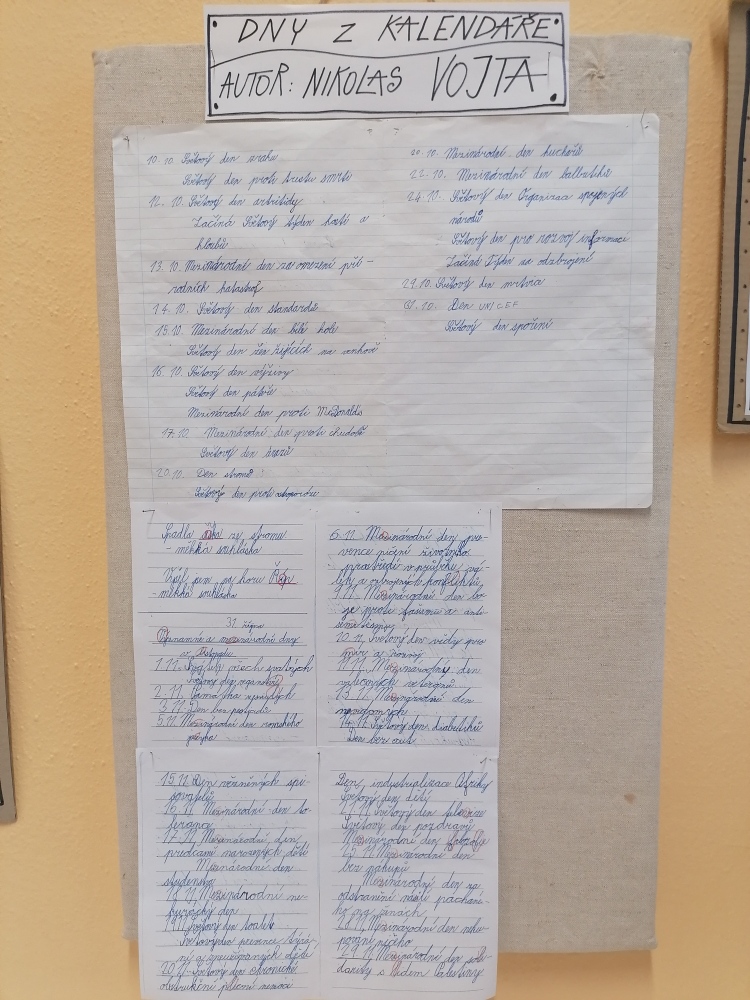 DNY Z KALENDÁŘE
AUTOR: NIKOLAS VOJTA
10. 10. Světový den zraku
Světový den proti trestu smrti
12. 10. Světový den artritidy
Začíná Světový týden kostí a
kloubů
13. 10. Mezinárodní den za omezení pří-
rodních katastrof
14. 10. Světový den standardů
15. 10. Mezinárodní den bílé hole
Světový den žen žijících na venkově
16. 10. Světový den výživy
Světový den páteře
Mezinárodní den proti McDonald's
17. 10. Mezinárodní den proti chudobě
Světový den úrazů
20. 10. Den stromů
Světový den proti
20. 10. Mezinárodní den kuchařů
22. 10. Mezinárodní den
24. 10. Světový den Organizace spojených
národů
Světový den pro rozvoj informací
Začíná Týden za odzbrojení
29. 10. Světový den mrtvice
31. 10. Den UNICEF
Světový den spoření
Spadla ze stromu
- měkká souhláska
Vyšel jsem na horu Říp
- měkká souhláska
31. října
Významné a mezinárodní dny
v listopadu
1. 11. Svátek všech svatých
Světový den veganství
2. 11. Památka zesnulých
3. 11. Den bez
5. 11. Mezinárodní den romského
jazyka
6. 11. Mezinárodní den pre-
vence ničení životního
prostředí v průběhu vá-
lek a ozbrojených konfliktů
9. 11. Mezinárodní den bo-
je proti fašismu a anti-
semitismu
10. 11. Světový den vědy pro
mír a rozvoj
11. 11. Mezinárodní den
válečných veteránů
13. 11. Mezinárodní den
nevidomých
14. 11. Světový den diabetiků
Den bez aut
15. 11. Den vězněných spi-
sovatelů
16. 11. Mezinárodní den to-
lerance
17. 11. Mezinárodní den
předčasně narozených dětí
Mezinárodní den
studentstva
18. 11. Mezinárodní ne-
kuřácký den
19. 11. Světový den toalet
Světový den prevence týrá-
ní a zneužívaných dětí
20. 11. Světový den chronické
obstrukční plicní nemoci
Den industrializace Afriky
Světový den dětí
21. 11. Světový den televize
Světový den pozdravů
Mezinárodní den filozofie
25. 11. Mezinárodní den
bez nákupů
Mezinárodní den za
odstranění násilí páchané-
ho na ženách
28. 11. Mezinárodní den
29. 11. Mezinárodní den soli-
darity s lidem Palestiny